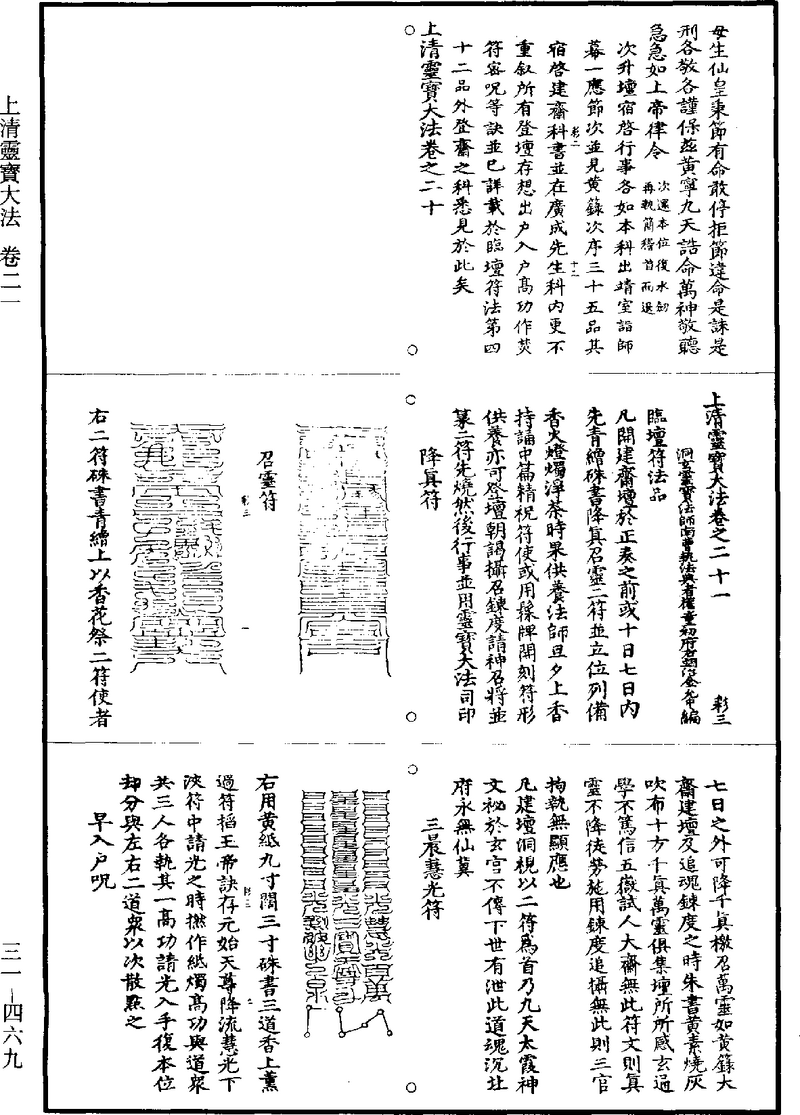 上清靈寶大法 卷二一
三一—四六九
母生仙皇束節有命敢停拒節違命是誅是
刑各敬各謹保茲黃寧九天誥命萬神敬聽
急急如上帝律令 次還本位復水劒
再執簡稽首而退
次升壇宿啓行事各如本科出靖室詣師
幕一應節次並見黃籙次序三十五品其
宿啓建齋科書並在廣成先生科內更不
彩二 十二
重敘所有登壇存想出户入户髙功作焚
符密呪等訣並已詳載於臨壇符法第四
十二品外登齋之科悉見於此矣
上清靈寶大法卷之二十
上清靈寶大法卷之二十一 彩三
洞玄靈寶法師南曹執法典者權童初府右翊治金允中編
臨壇符法品
凡開建齋壇於正奏之前或十日七日內
先青繒硃書降真召靈二符並立位列備
香火燈燭淨茶時果供養法師旦夕上香
持誦中篇精祝符使或用𣖔牌開刻符形
供養亦可登壇朝謁攝召鍊度請神召將並
篆二符先燒然後行事並用靈寶大法司印
降真符
召靈符
彩三 一
右二符硃書青繒上以香花祭二符使者
七日之外可降千真檄召萬靈如黃籙大
齋建壇及追魂鍊度之時朱書黃素燒灰
吹布十方千真萬靈俱集壇所所感玄通
學不篤信五嶽試人大齋無此符文則真
靈不降徒勞施用鍊度追攝無此則三官
拘執無顯應也
凡建壇洞視以二符爲首乃九天太霞神
文祕於玄宮不傳下世有泄此道魂沉北
府永無仙冀
三晨慧光符
右用黃紙九寸闊三寸硃書三道香上薰
過符掐王帝訣存元始天尊降流慧光下
彩三 二
浹符中請光之時撚作紙燭髙功與道衆
共三人各執其一髙功請光入手復本位
却分與左右二道衆以次散點之
早入户呪